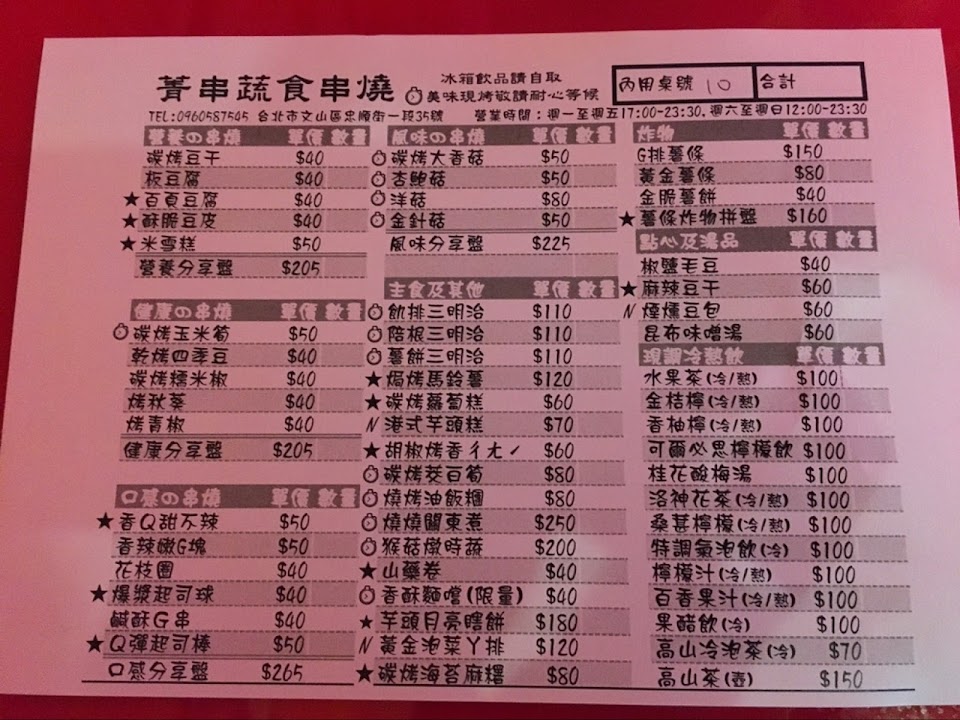 菁串蔬食串燒
冰箱飲品請自取
美味現烤敬請耐心等候
內用桌號 10 合計
TEL:0960587545 台北市文山區忠順街一段35號 營業時間：週一至週五17:00-23:30. 週六至週日12:00-23:30
營養の串燒 單價 數量
碳烤豆干 $40
板豆腐 $40
★百頁豆腐 $40
★酥脆豆皮 $40
★米雪糕 $50
營養分享盤 $205
健康の串燒 單價 數量
碳烤玉米筍 $50
乾烤四季豆 $40
碳烤糯米椒 $40
烤秋葵 $40
烤青椒 $40
健康分享盤 $205
口感の串燒 單價 數量
★香Q甜不辣 $50
香辣嫩G塊 $50
花枝圈 $40
★爆漿起司球 $40
鹹酥G串 $40
★Q彈起司棒 $50
口感分享盤 $265
風味の串燒 單價 數量
碳烤大香菇 $50
杏鮑菇 $50
洋菇 $80
金針菇 $50
風味分享盤 $225
主食及其他 單價 數量
飢排三明治 $110
陪根三明治 $110
薯餅三明治 $110
★焗烤馬鈴薯 $120
★碳烤蘿蔔糕 $60
N 港式芋頭糕 $70
★胡椒烤香ㄔㄤˊ $60
碳烤茭白筍 $80
燒烤油飯糰 $80
燒燒關東煮 $250
猴菇燉時蔬 $200
★山藥卷 $40
香酥麵嚐(限量) $40
★芋頭月亮瞎餅 $180
N 黃金泡菜丫排 $120
★碳烤海苔麻糬 $80
炸物 單價 數量
G排薯條 $150
黃金薯條 $80
金脆薯餅 $40
★薯條炸物拼盤 $160
點心及湯品 單價 數量
椒鹽毛豆 $40
★麻辣豆干 $60
N 煙燻豆包 $60
昆布味噌湯 $60
現調冷熱飲 單價 數量
水果茶(冷/熱) $100
金桔檸(冷/熱) $100
香柚檸(冷/熱) $100
可爾必思檸檬飲 $100
桂花酸梅湯 $100
洛神花茶(冷/熱) $100
桑葚檸檬(冷/熱) $100
特調氣泡飲(冷) $100
檸檬汁(冷/熱) $100
百香果汁(冷/熱) $100
果醋飲(冷) $100
高山冷泡茶(冷) $70
高山茶(壺) $150